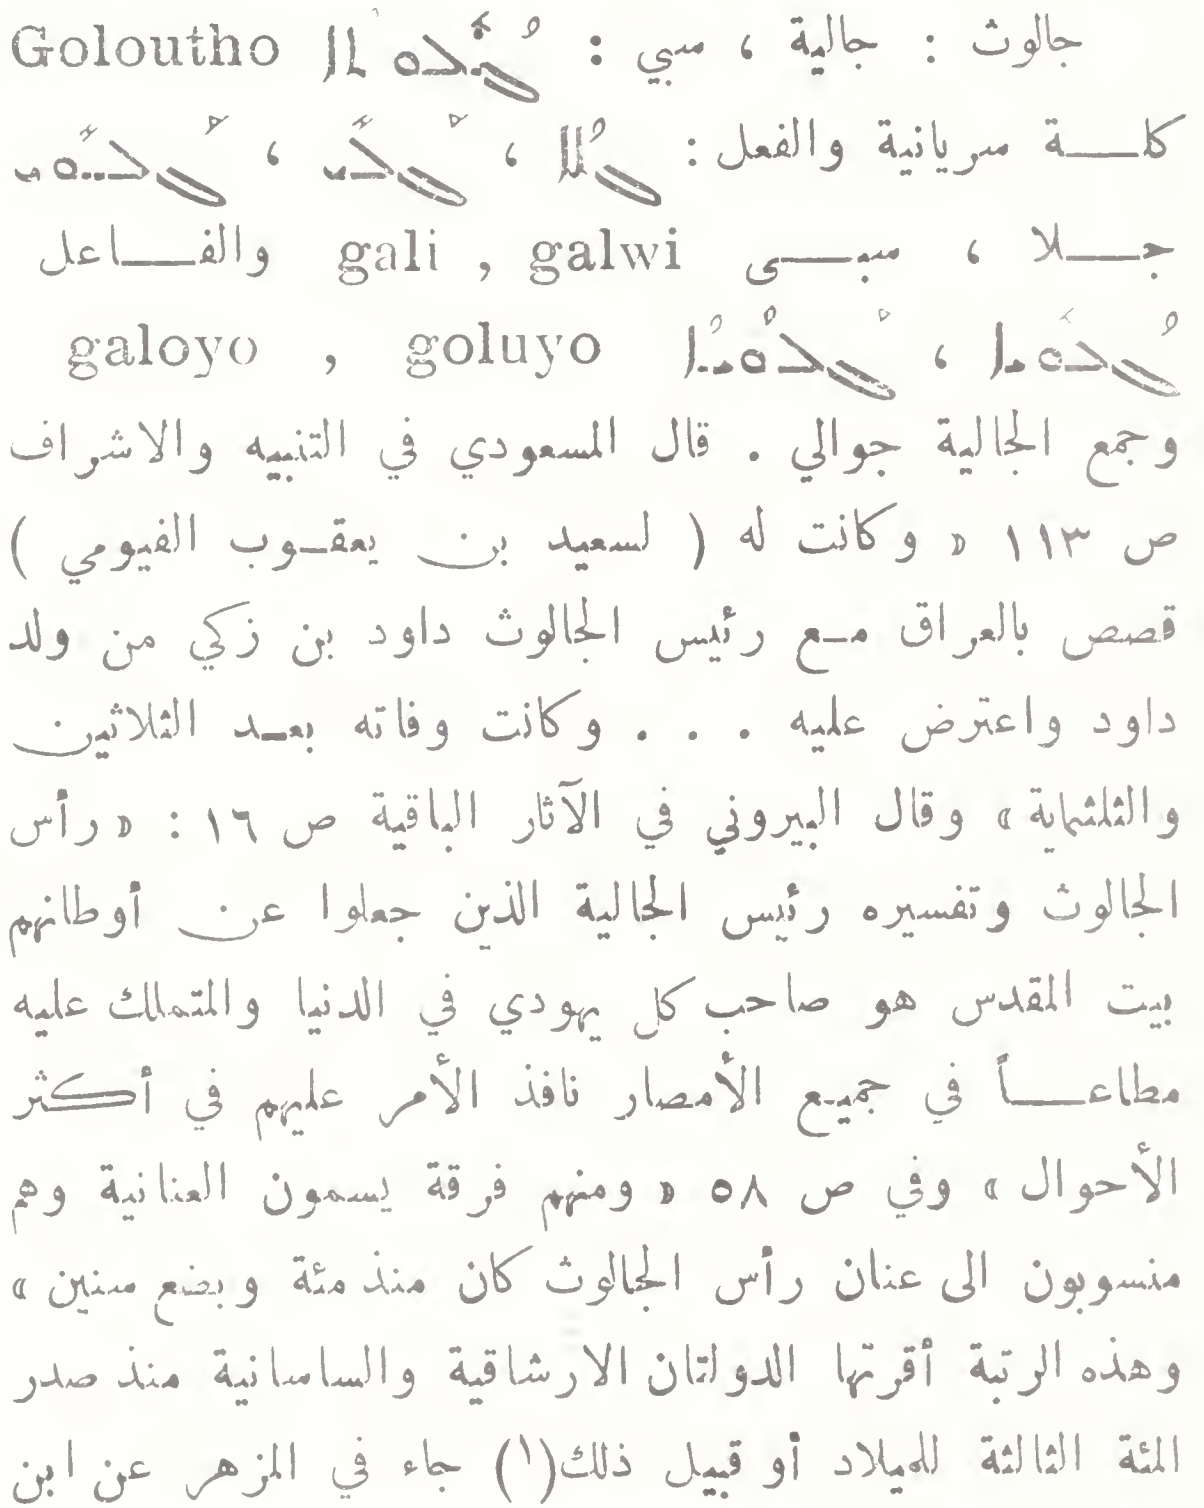 جالوث : جالية ، سبي : ܓܳܠܘܬܐ Goloutho
كلــة سريانية والفعل : ܓܠܐ ، ܓܰܠܺܝ ، ܓܰܠܘܺܝ
جــلا ، سبــى gali , galwi والفــاعل
ܓܳܠܘܝܐ ، ܓܰܠܘܝܐ galoyo , goluyo
وجمع الجالية جوالي . قال المسعودي في التنبيه والاشراف
ص ١١٣ « وكانت له ( لسعيد بن يعقـوب الفيومي )
قصص بالعراق مـع رئيس الجالوث داود بن زكي من ولد
داود واعترض عليه . . . وكانت وفاته بعـد الثلاثين
والثلثماية » وقال البيروني في الآثار الباقية ص ١٦ : « رأس
الجالوث وتفسيره رئيس الجالية الذين جعلوا عن أوطانهم
بيت المقدس هو صاحب كل يهودي في الدنيا والمتملك عليه
مطاعــاً في جميع الأمصار نافذ الأمر عليهم في أكثر
الأحوال » وفي ص ٥٨ « ومنهم فرقة يسمون العنانية وهم
منسوبون الى عنان رأس الجالوث كان منذ مئة وبضع سنين »
وهذه الرتبة أقرتها الدولتان الارشاقية والساسانية منذ صدر
المئة الثالثة للميلاد أو قبيل ذلك(١) جاء في المزهر عن ابن